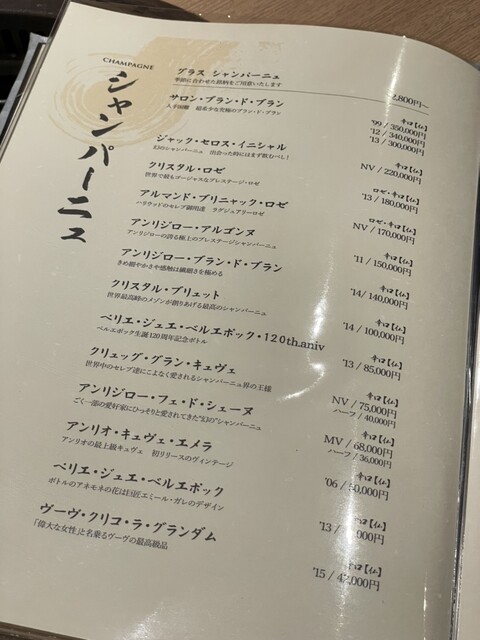 CHAMPAGNE
シャンパーニュ
グラス シャンパーニュ
季節に合わせた銘柄をご用意いたします
2,800円~
サロン・ブラン・ド・ブラン
辛口【仏】
入手困難 超希少な究極のブラン・ド・ブラン
'99 / 350,000円
'12 / 340,000円
'13 / 300,000円
ジャック・セロス・イニシャル
辛口【仏】
幻のシャンパーニュ 出会った時にはまず飲むべし!
NV / 220,000円
クリスタル・ロゼ
ロゼ・辛口【仏】
世界で最もゴージャスなプレステージ・ロゼ
'13 / 180,000円
アルマンド・ブリニャック・ロゼ
ロゼ・辛口【仏】
ハリウッドのセレブ御用達 ラグジュアリーロゼ
NV / 170,000円
アンリジロー・アルゴンヌ
辛口【仏】
アンリジローの誇る極上のプレステージシャンパーニュ
'11 / 150,000円
アンリジロー・ブラン・ド・ブラン
辛口【仏】
きめ細やかさや感触は繊細さを極める
'14 / 140,000円
クリスタル・ブリュット
辛口【仏】
世界最高峰のメゾンが創りあげる最高のシャンパーニュ
'14 / 100,000円
ペリエ・ジュエ・ベルエポック・120th.aniv
辛口【仏】
ベルエポック生誕120周年記念ボトル
'13 / 85,000円
クリュッグ・グラン・キュヴェ
辛口【仏】
世界中のセレブ達にこよなく愛されるシャンパーニュ界の王様
NV / 75,000円
ハーフ / 40,000円
アンリジロー・フェ・ド・シェーヌ
辛口【仏】
ごく一部の愛好家にひっそりと愛されてきた"幻の"シャンパーニュ
MV / 68,000円
ハーフ / 36,000円
アンリオ・キュヴェ・エメラ
辛口【仏】
アンリオの最上級キュヴェ 初リリースのヴィンテージ
'06 / 50,000円
ペリエ・ジュエ・ベルエポック
辛口【仏】
ボトルのアネモネの花は巨匠エミール・ガレのデザイン
'13 /
ヴーヴ・クリコ・ラ・グランダム
辛口【仏】
「偉大な女性」と名乗るヴーヴの最高級品
'15 / 42,000円